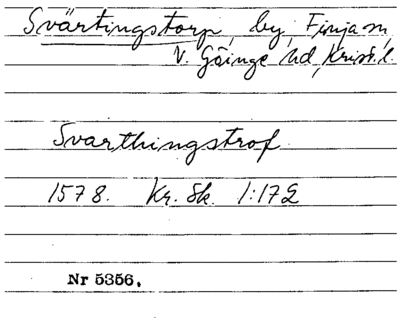 Svärtingstorp, by, Finja sn,
V. Göinge hd, Krist. l.
Svarthingstrof
1578. Kr. Sk. 1:172
Nr 5356.